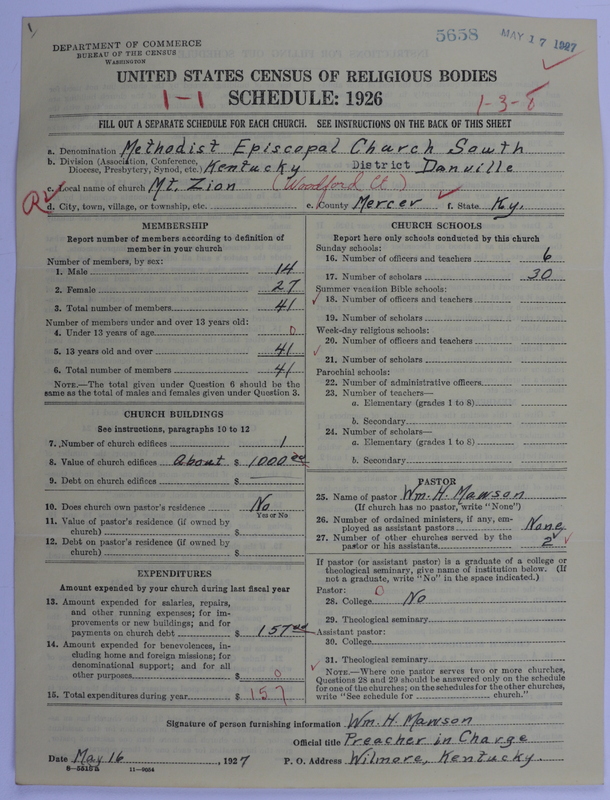 5658 MAY 17 1927
DEPARTMENT OF COMMERCE
BUREAU OF THE CENSUS
WASHINGTON
UNITED STATES CENSUS OF RELIGIOUS BODIES
1-1 SCHEDULE: 1926 1-3-0
FILL OUT A SEPARATE SCHEDULE FOR EACH CHURCH. SEE INSTRUCTIONS ON THE BACK OF THIS SHEET
a. Denomination Methodist Episcopal Church South
b. Division (Association, Conference, Diocese, Presbytery, Synod, etc.) Kentucky District Danville
c. Local name of church Mt. Zion (Woodford Ct.)
d. City, town, village, or township, etc. e. County Mercer f. State Ky.
MEMBERSHIP
Report number of members according to definition of
member in your church
Number of members, by sex:
1. Male 14
2. Female 27
3. Total number of members 41
Number of members under and over 13 years old:
4. Under 13 years of age 0
5. 13 years old and over 41
6. Total number of members 41
NOTE.—The total given under Question 6 should be the
same as the total of males and females given under Question 3.
CHURCH BUILDINGS
See instructions, paragraphs 10 to 12
7. Number of church edifices 1
8. Value of church edifices About $ 1000.00
9. Debt on church edifices $
10. Does church own pastor's residence No
Yes or No
11. Value of pastor's residence (if owned by
church) $
12. Debt on pastor's residence (if owned by
church) $
EXPENDITURES
Amount expended by your church during last fiscal year
13. Amount expended for salaries, repairs,
and other running expenses; for im-
provements or new buildings; and for
payments on church debt $ 157.00
14. Amount expended for benevolences, in-
cluding home and foreign missions; for
denominational support; and for all
other purposes $ 0
15. Total expenditures during year $ 157
CHURCH SCHOOLS
Report here only schools conducted by this church
Sunday schools:
16. Number of officers and teachers 6
17. Number of scholars 30
Summer vacation Bible schools:
18. Number of officers and teachers
19. Number of scholars
Week-day religious schools:
20. Number of officers and teachers
21. Number of scholars
Parochial schools:
22. Number of administrative officers
23. Number of teachers—
a. Elementary (grades 1 to 8)
b. Secondary
24. Number of scholars—
a. Elementary (grades 1 to 8)
b. Secondary
PASTOR
25. Name of pastor Wm. H. Mawson
(If church has no pastor, write "None")
26. Number of ordained ministers, if any, em-
ployed as assistant pastors None
27. Number of other churches served by the
pastor or his assistants 2
If pastor (or assistant pastor) is a graduate of a college or
theological seminary, give name of institution below. (If
not a graduate, write "No" in the space indicated.)
Pastor: 0
28. College No
29. Theological seminary
Assistant pastor:
30. College
31. Theological seminary
NOTE.—Where one pastor serves two or more churches,
Questions 28 and 29 should be answered only on the schedule
for one of the churches; on the schedules for the other churches,
write "See schedule for church."
Signature of person furnishing information Wm. H. Mawson
Official title Preacher in Charge
Date May 16, 1927 P. O. Address Wilmore, Kentucky.
11—9054